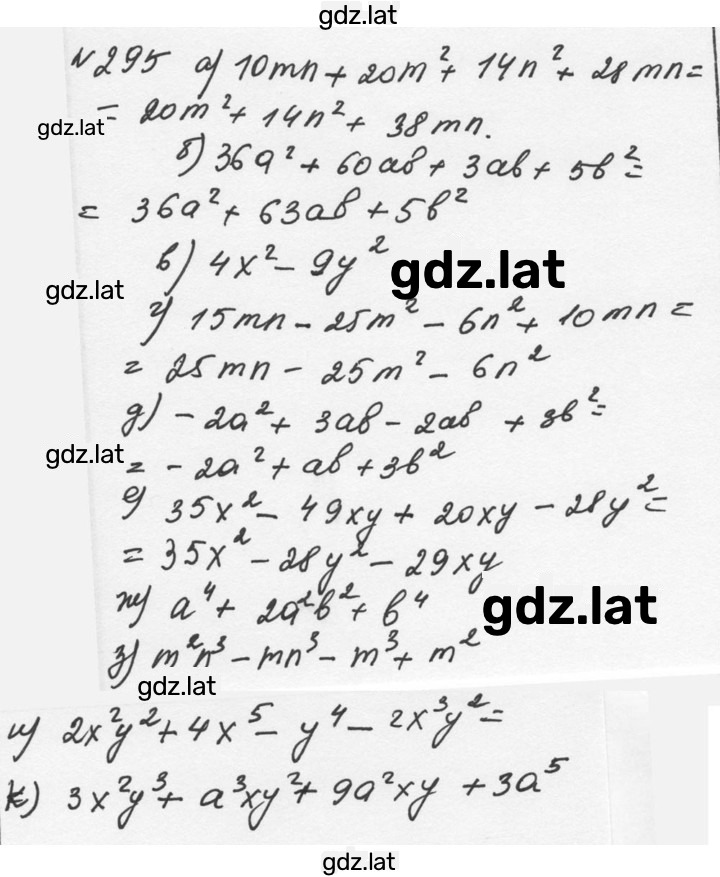 gdz.lat
№295 а) 10mn + 20m² + 14n² + 28mn =
= 20m² + 14n² + 38mn.
gdz.lat
б) 36a² + 60ab + 3ab + 5b² =
= 36a² + 63ab + 5b²
в) 4x² - 9y²
gdz.lat
gdz.lat
г) 15mn - 25m² - 6n² + 10mn =
= 25mn - 25m² - 6n²
д) -2a² + 3ab - 2ab + 3b² =
gdz.lat
= -2a² + ab + 3b²
е) 35x² - 49xy + 20xy - 28y² =
= 35x² - 28y² - 29xy
ж) a⁴ + 2a²b² + b⁴
gdz.lat
з) m²n³ - mn³ - m³ + m²
gdz.lat
и) 2x²y² + 4x⁵ - y⁴ - 2x³y² =
к) 3x²y³ + a³xy² + 9a²xy + 3a⁵
gdz.lat